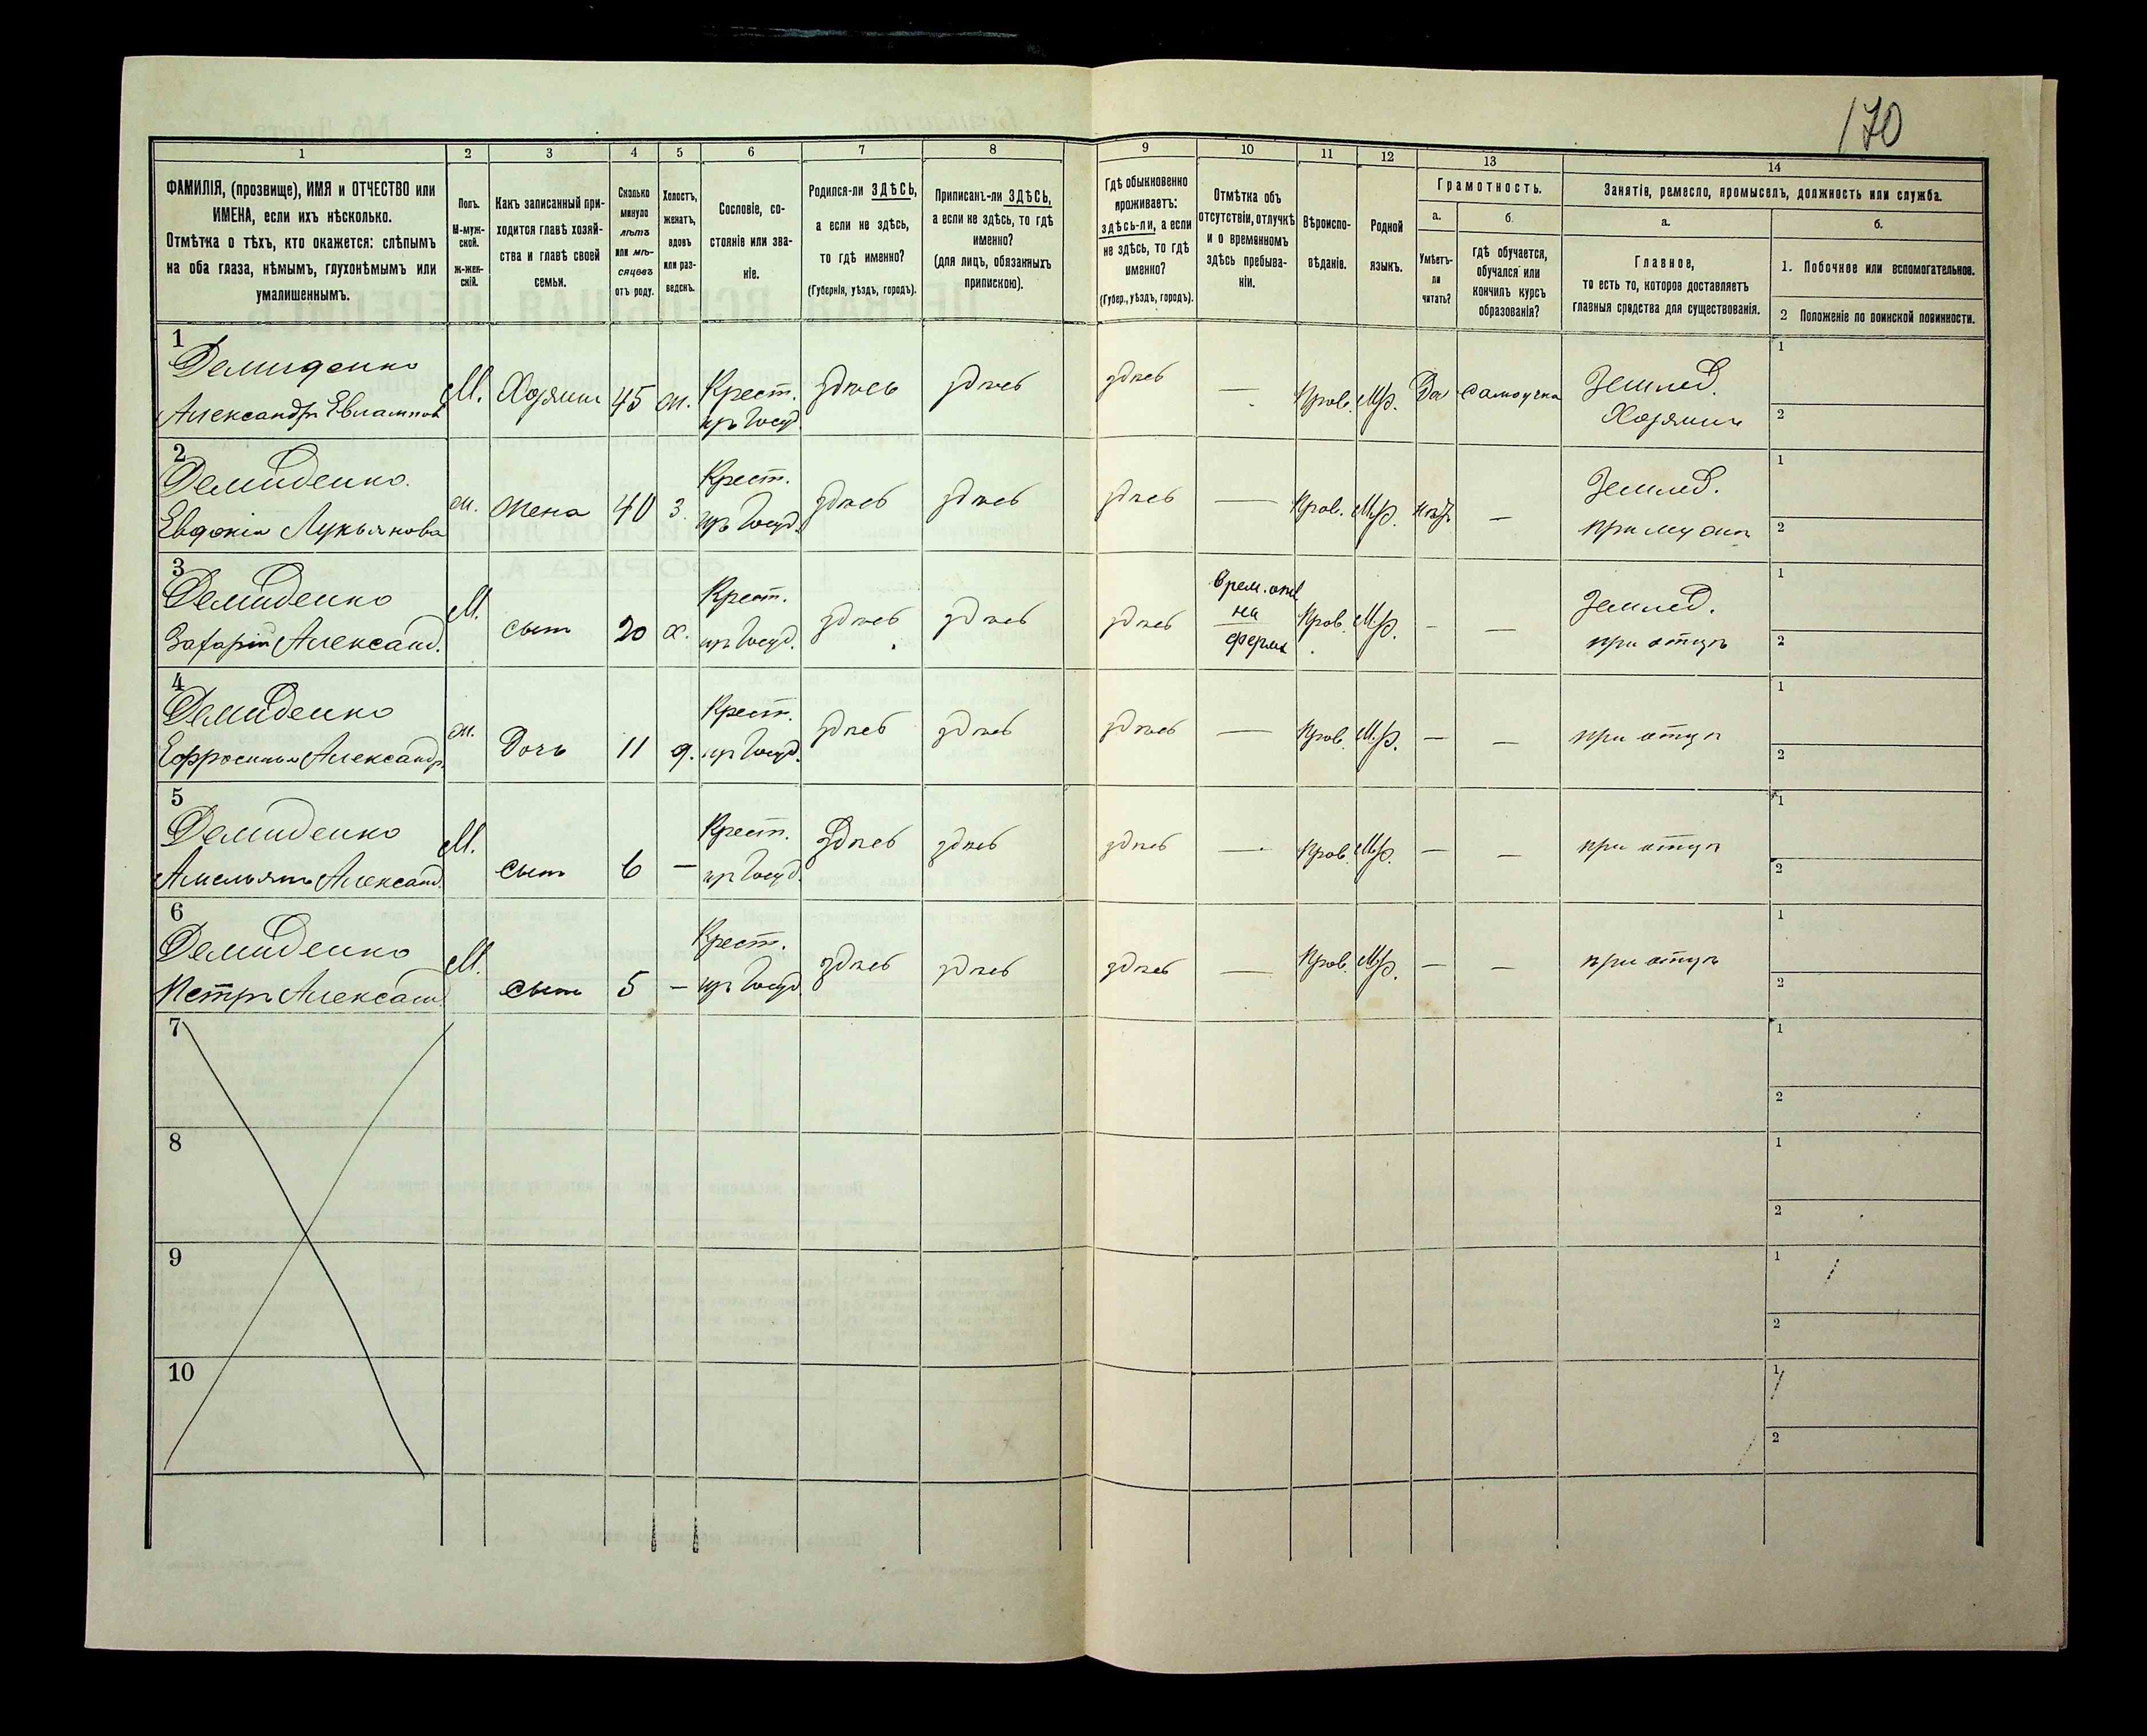 170
1 2 3 4 5 6 7 8 9 10 11 12 13 14
ФАМИЛІЯ, (прозвище), ИМЯ и ОТЧЕСТВО или
ИМЕНА, если ихъ нѣсколько.
Отмѣтка о тѣхъ, кто окажется: слѣпымъ
на оба глаза, нѣмымъ, глухонѣмымъ или
умалишеннымъ.
Полъ.
М-муж-
ской.
ж-жен-
скій.
Какъ записанный при-
ходится главѣ хозяй-
ства и главѣ своей
семьи.
Сколько
минуло
лѣтъ
или мѣ-
сяцевъ
отъ роду.
Холостъ,
женатъ,
вдовъ
или раз-
веденъ.
Сословіе, со-
стояніе или зва-
ніе.
Родился-ли ЗДѢСЬ,
а если не здѣсь,
то гдѣ именно?
(Губернія, уѣздъ, городъ).
Приписанъ-ли ЗДѢСЬ,
а если не здѣсь, то гдѣ
именно?
(для лицъ, обязанныхъ
припискою).
Гдѣ обыкновенно
проживаетъ:
здѣсь-ли, а если
не здѣсь, то гдѣ
именно?
(Губер., уѣздъ, городъ).
Отмѣтка объ
отсутствіи, отлучкѣ
и о временномъ
здѣсь пребыва-
ніи.
Вѣроиспо-
вѣданіе.
Родной
языкъ.
Грамотность.
а.
Умѣетъ-
ли
читать?
б.
гдѣ обучается,
обучался или
кончилъ курсъ
образованія?
Занятіе, ремесло, промыселъ, должность или служба.
а.
Главное,
то есть то, которое доставляетъ
главныя средства для существованія.
б.
1. Побочное или вспомогательное.
2 Положеніе по воинской повинности.
1
Демиденко М. Хозяинъ 45 ж. Крест. здѣсь здѣсь здѣсь — Прав. Мр. Да самоучка Землед. 1
Александръ Евлампіев изъ Госуд. Хозяинъ 2
2
Демиденко. ж. жена 40 з. Крест. здѣсь здѣсь здѣсь — Прав. Мр. нѣтъ — Землед. 1
Евдокія Лукьянова изъ Госуд. при мужѣ 2
3
Демиденко М. сынъ 20 х. Крест. здѣсь здѣсь здѣсь Врем. отс. Прав. Мр. — — Землед. 1
Захарій Александ. изъ Госуд. на при отцѣ 2
фермѣ
4
Демиденко ж. Дочь 11 д. Крест. здѣсь здѣсь здѣсь — Прав. Мр. — — при отцѣ 1
Ефросинья Александр. изъ Госуд. 2
5
Демиденко М. сынъ 6 — Крест. здѣсь здѣсь здѣсь — Прав. Мр. — — при отцѣ 1
Амельянъ Александ. изъ Госуд. 2
6
Демиденко М. сынъ 5 — Крест. здѣсь здѣсь здѣсь — Прав. Мр. — — при отцѣ 1
Петръ Александ. изъ Госуд. 2
7 1
2
8 1
2
9 1
2
10 1
2